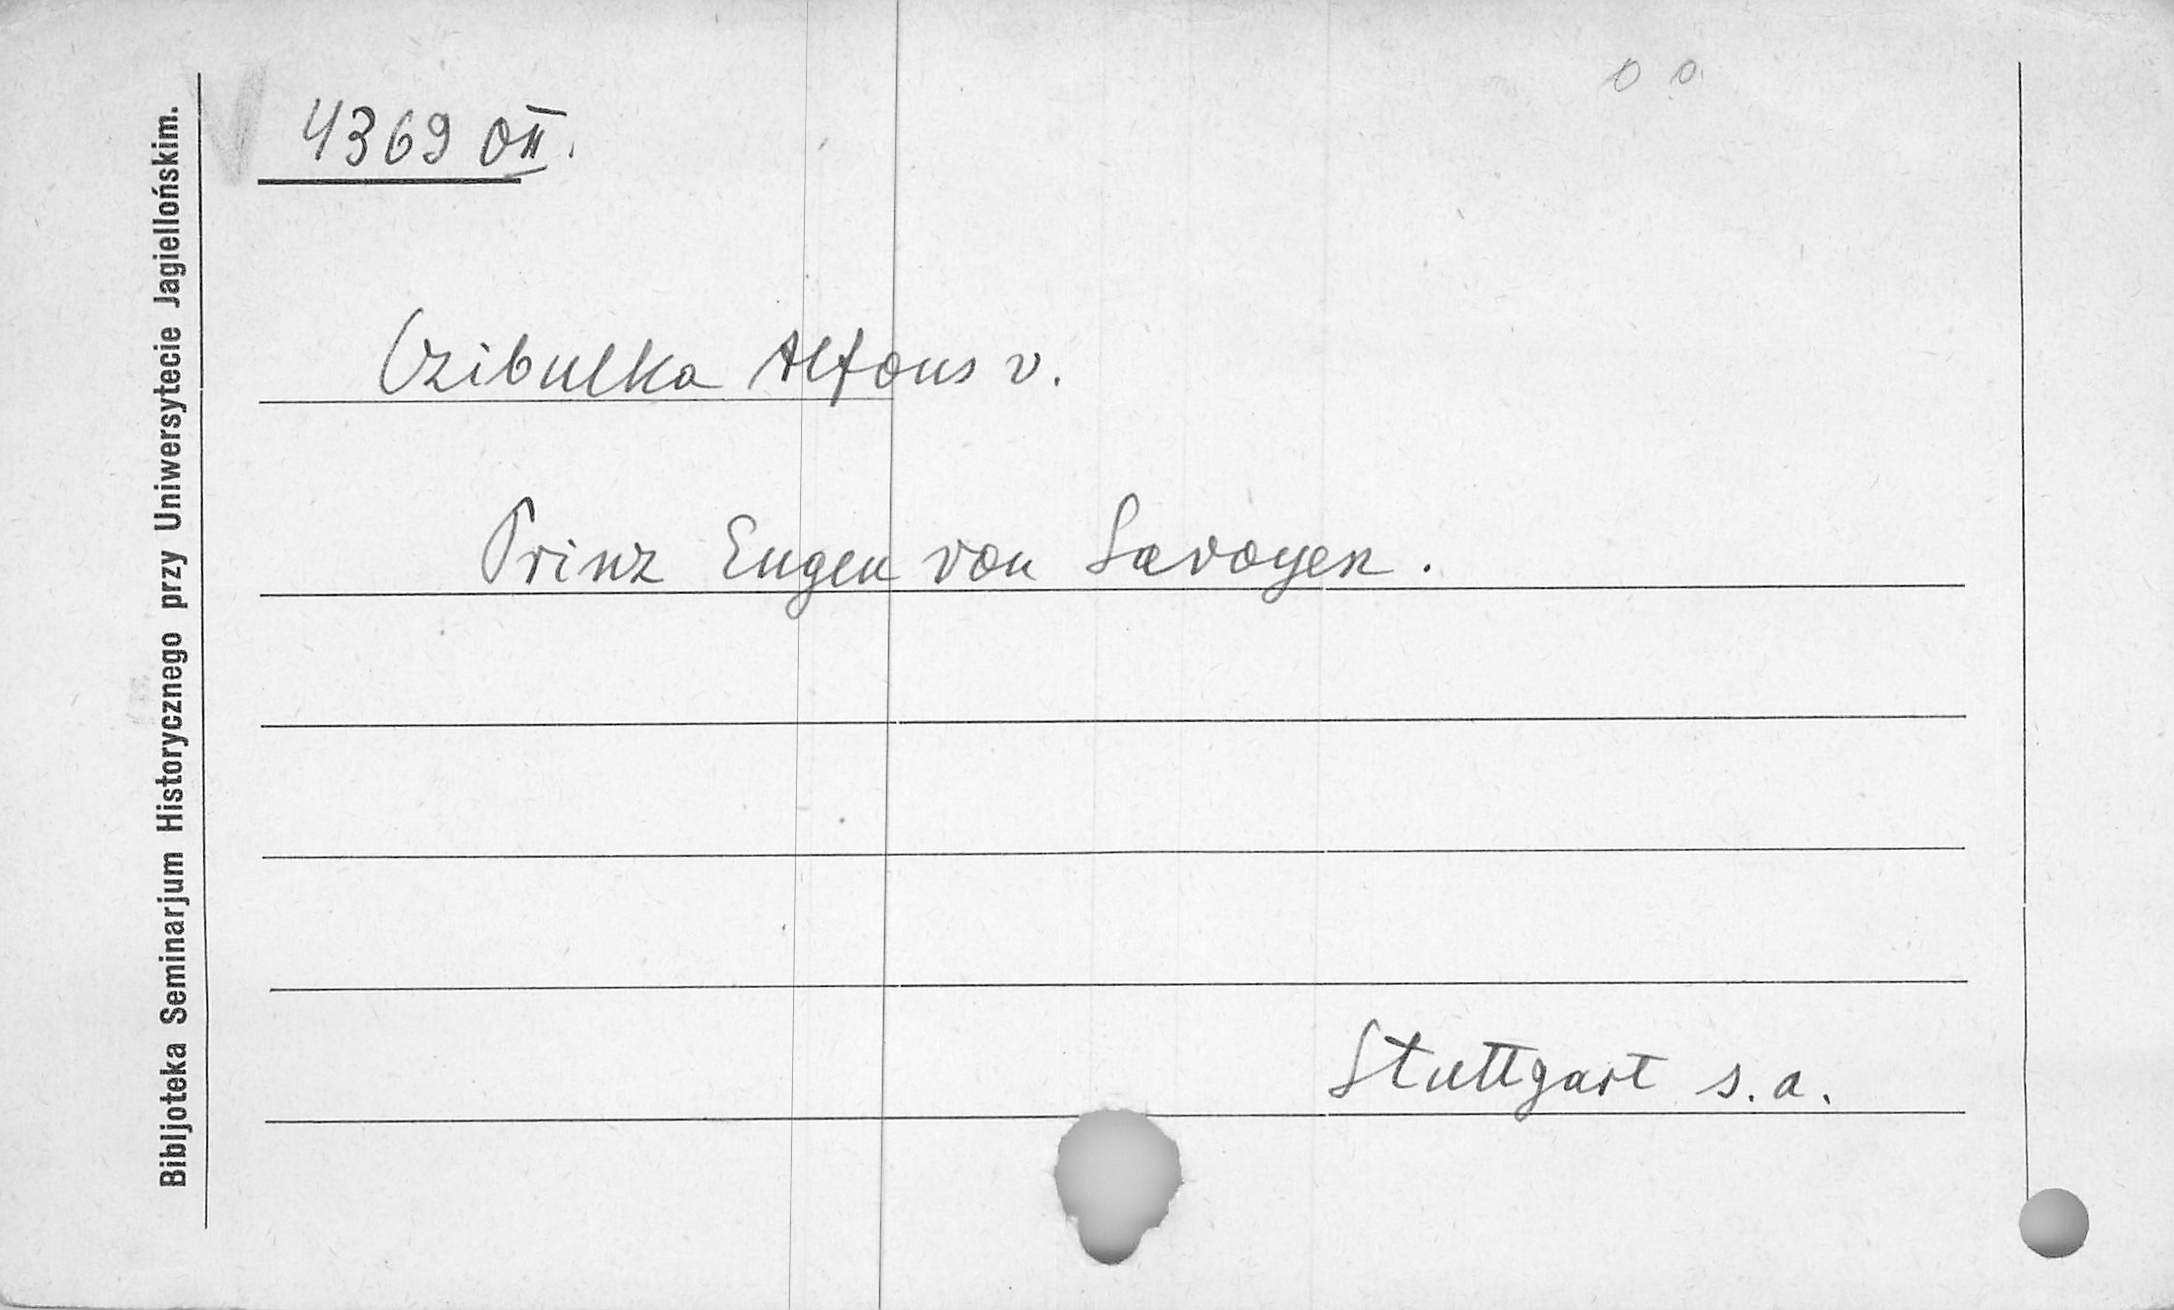 4369 OII.
Czibulka Alfons v.
Prinz Eugen von Savoyen.
Stuttgart s. a.
Bibljoteka Seminarjum Historycznego przy Uniwersytecie Jagiellońskim.